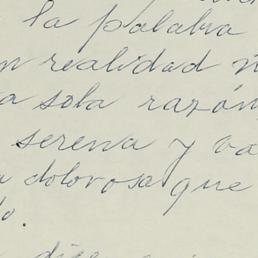 la palabra
n realidad n
a sola razón
serena y va
a dolorosa que
do.
dice